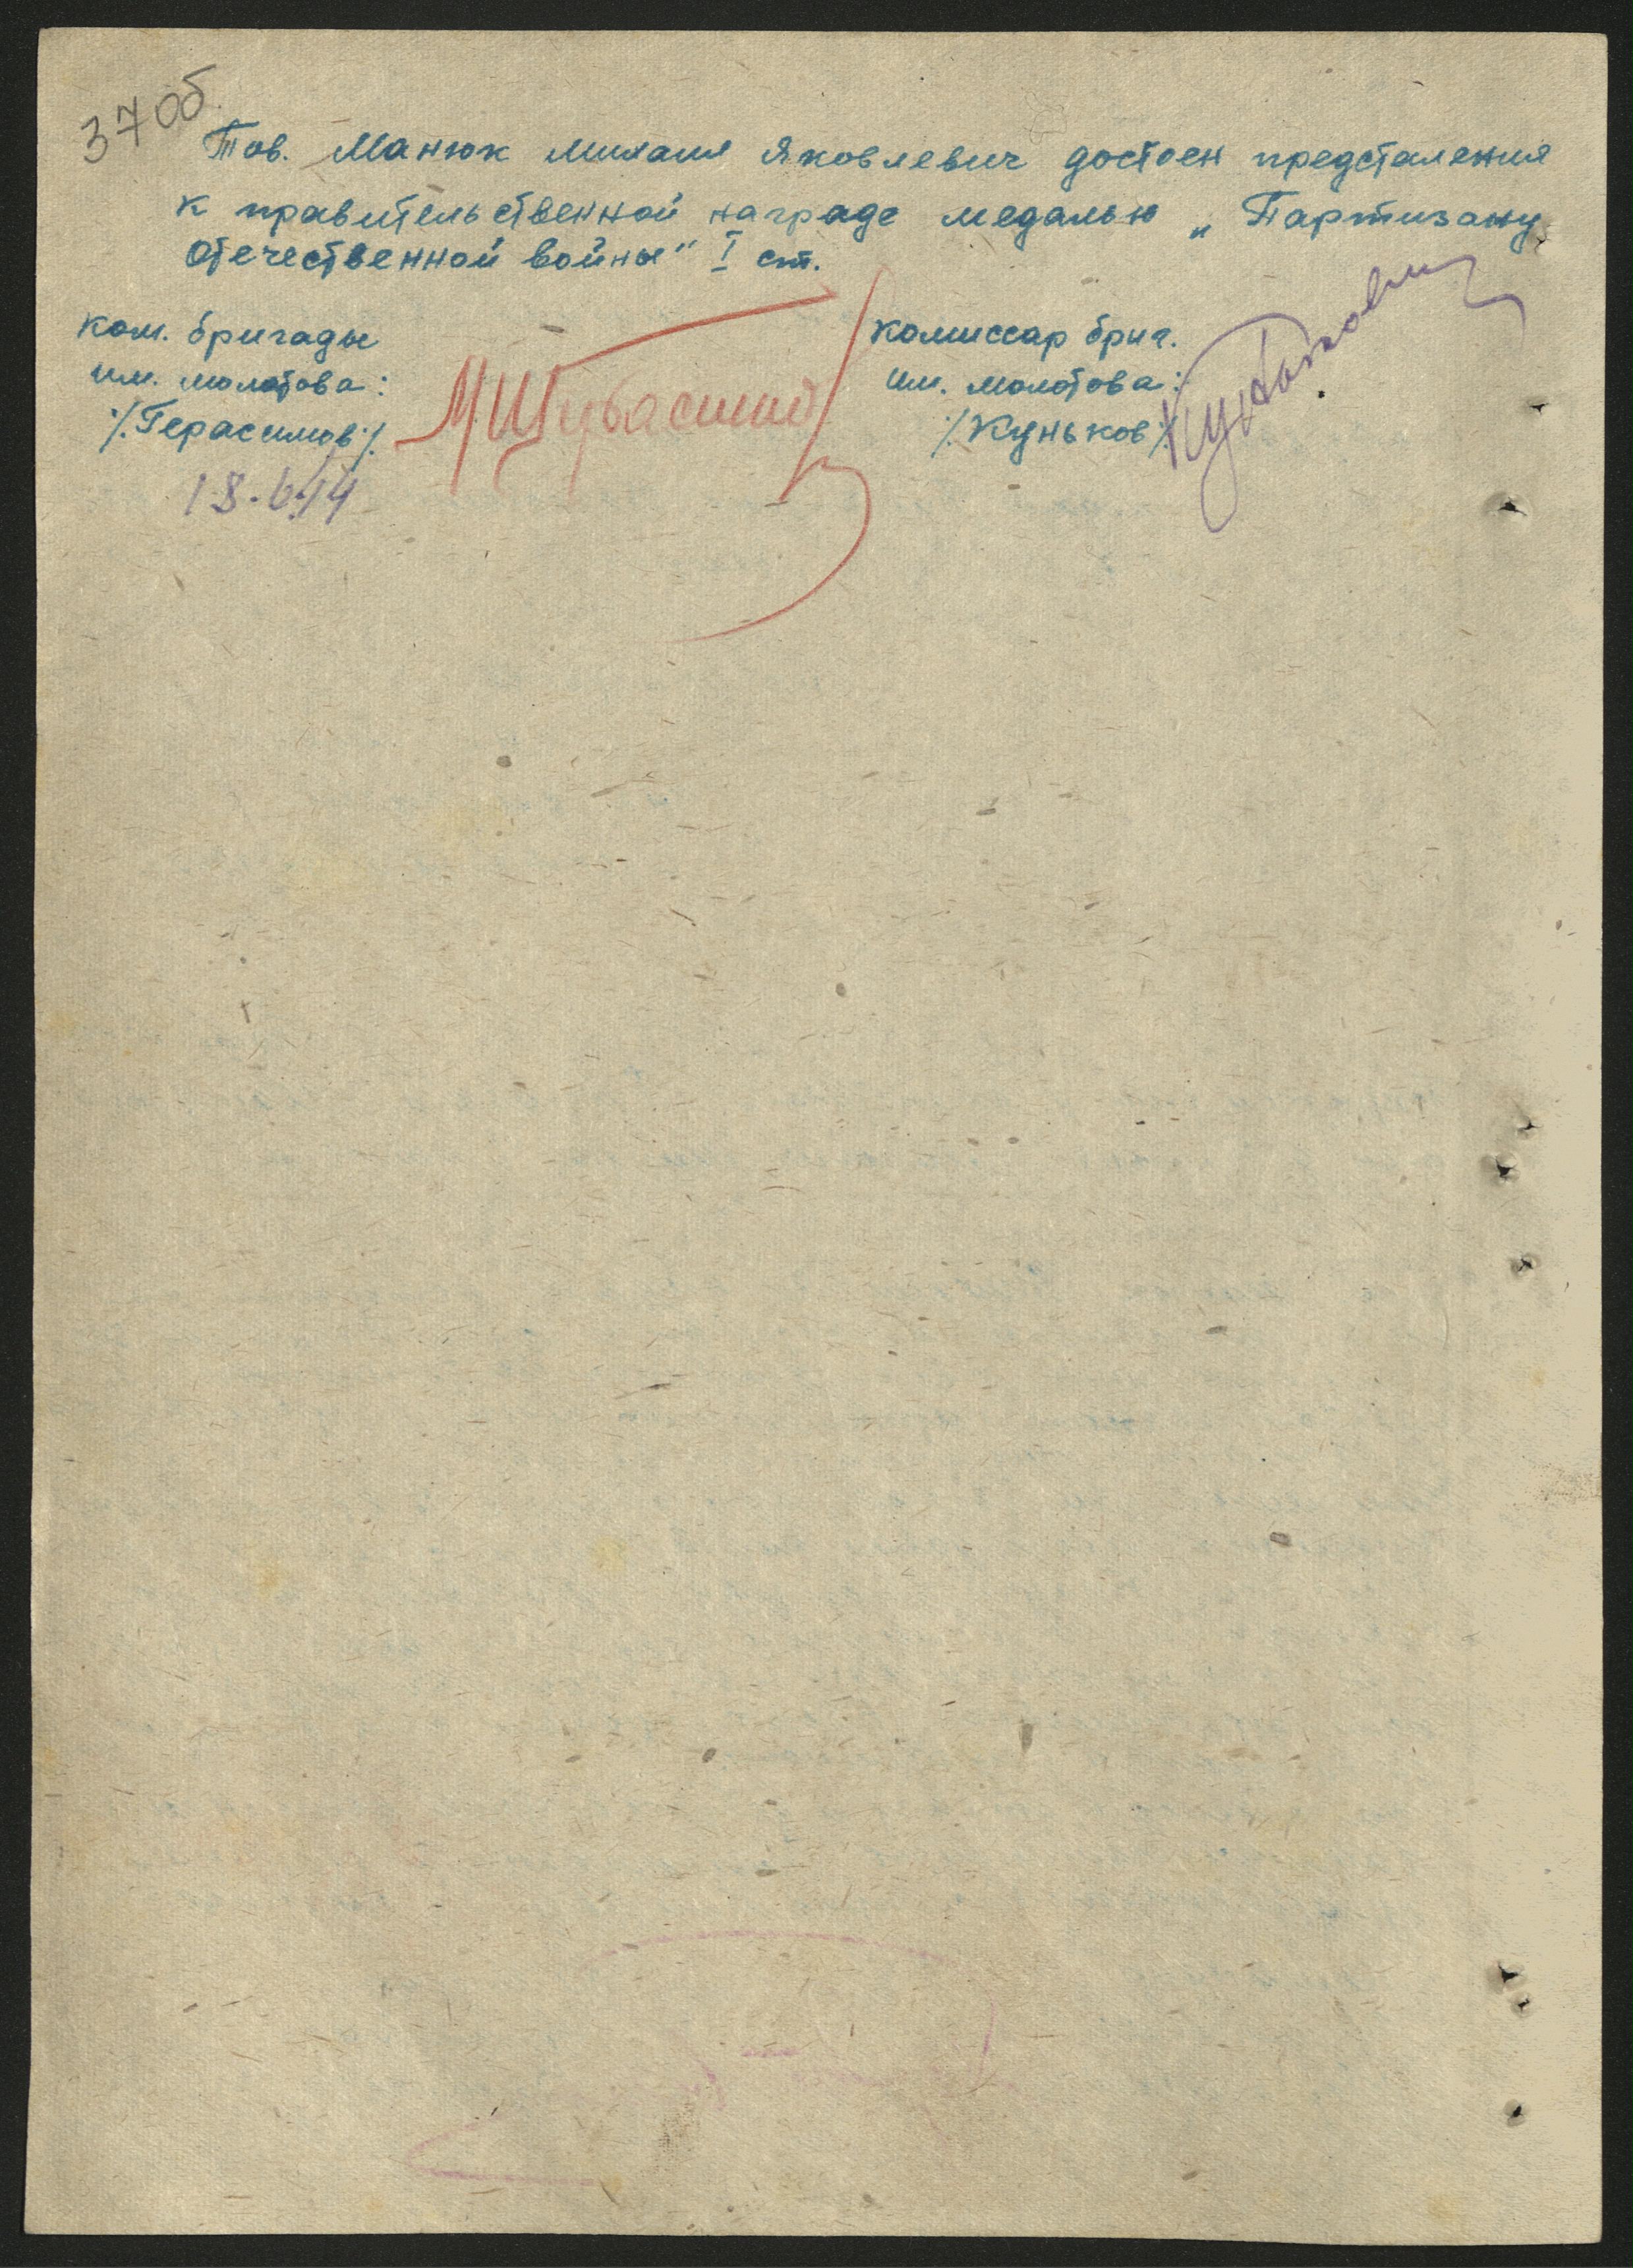 37 об.
Тов. Манюк Михаил Яковлевич достоен предсталения
к правительственной награде медалью „Партизану
Отечественной войны" I ст.
Ком. бригады
им. Молотова:
/Герасимов/
Комиссар бриг.
им. Молотова:
/Куньков/